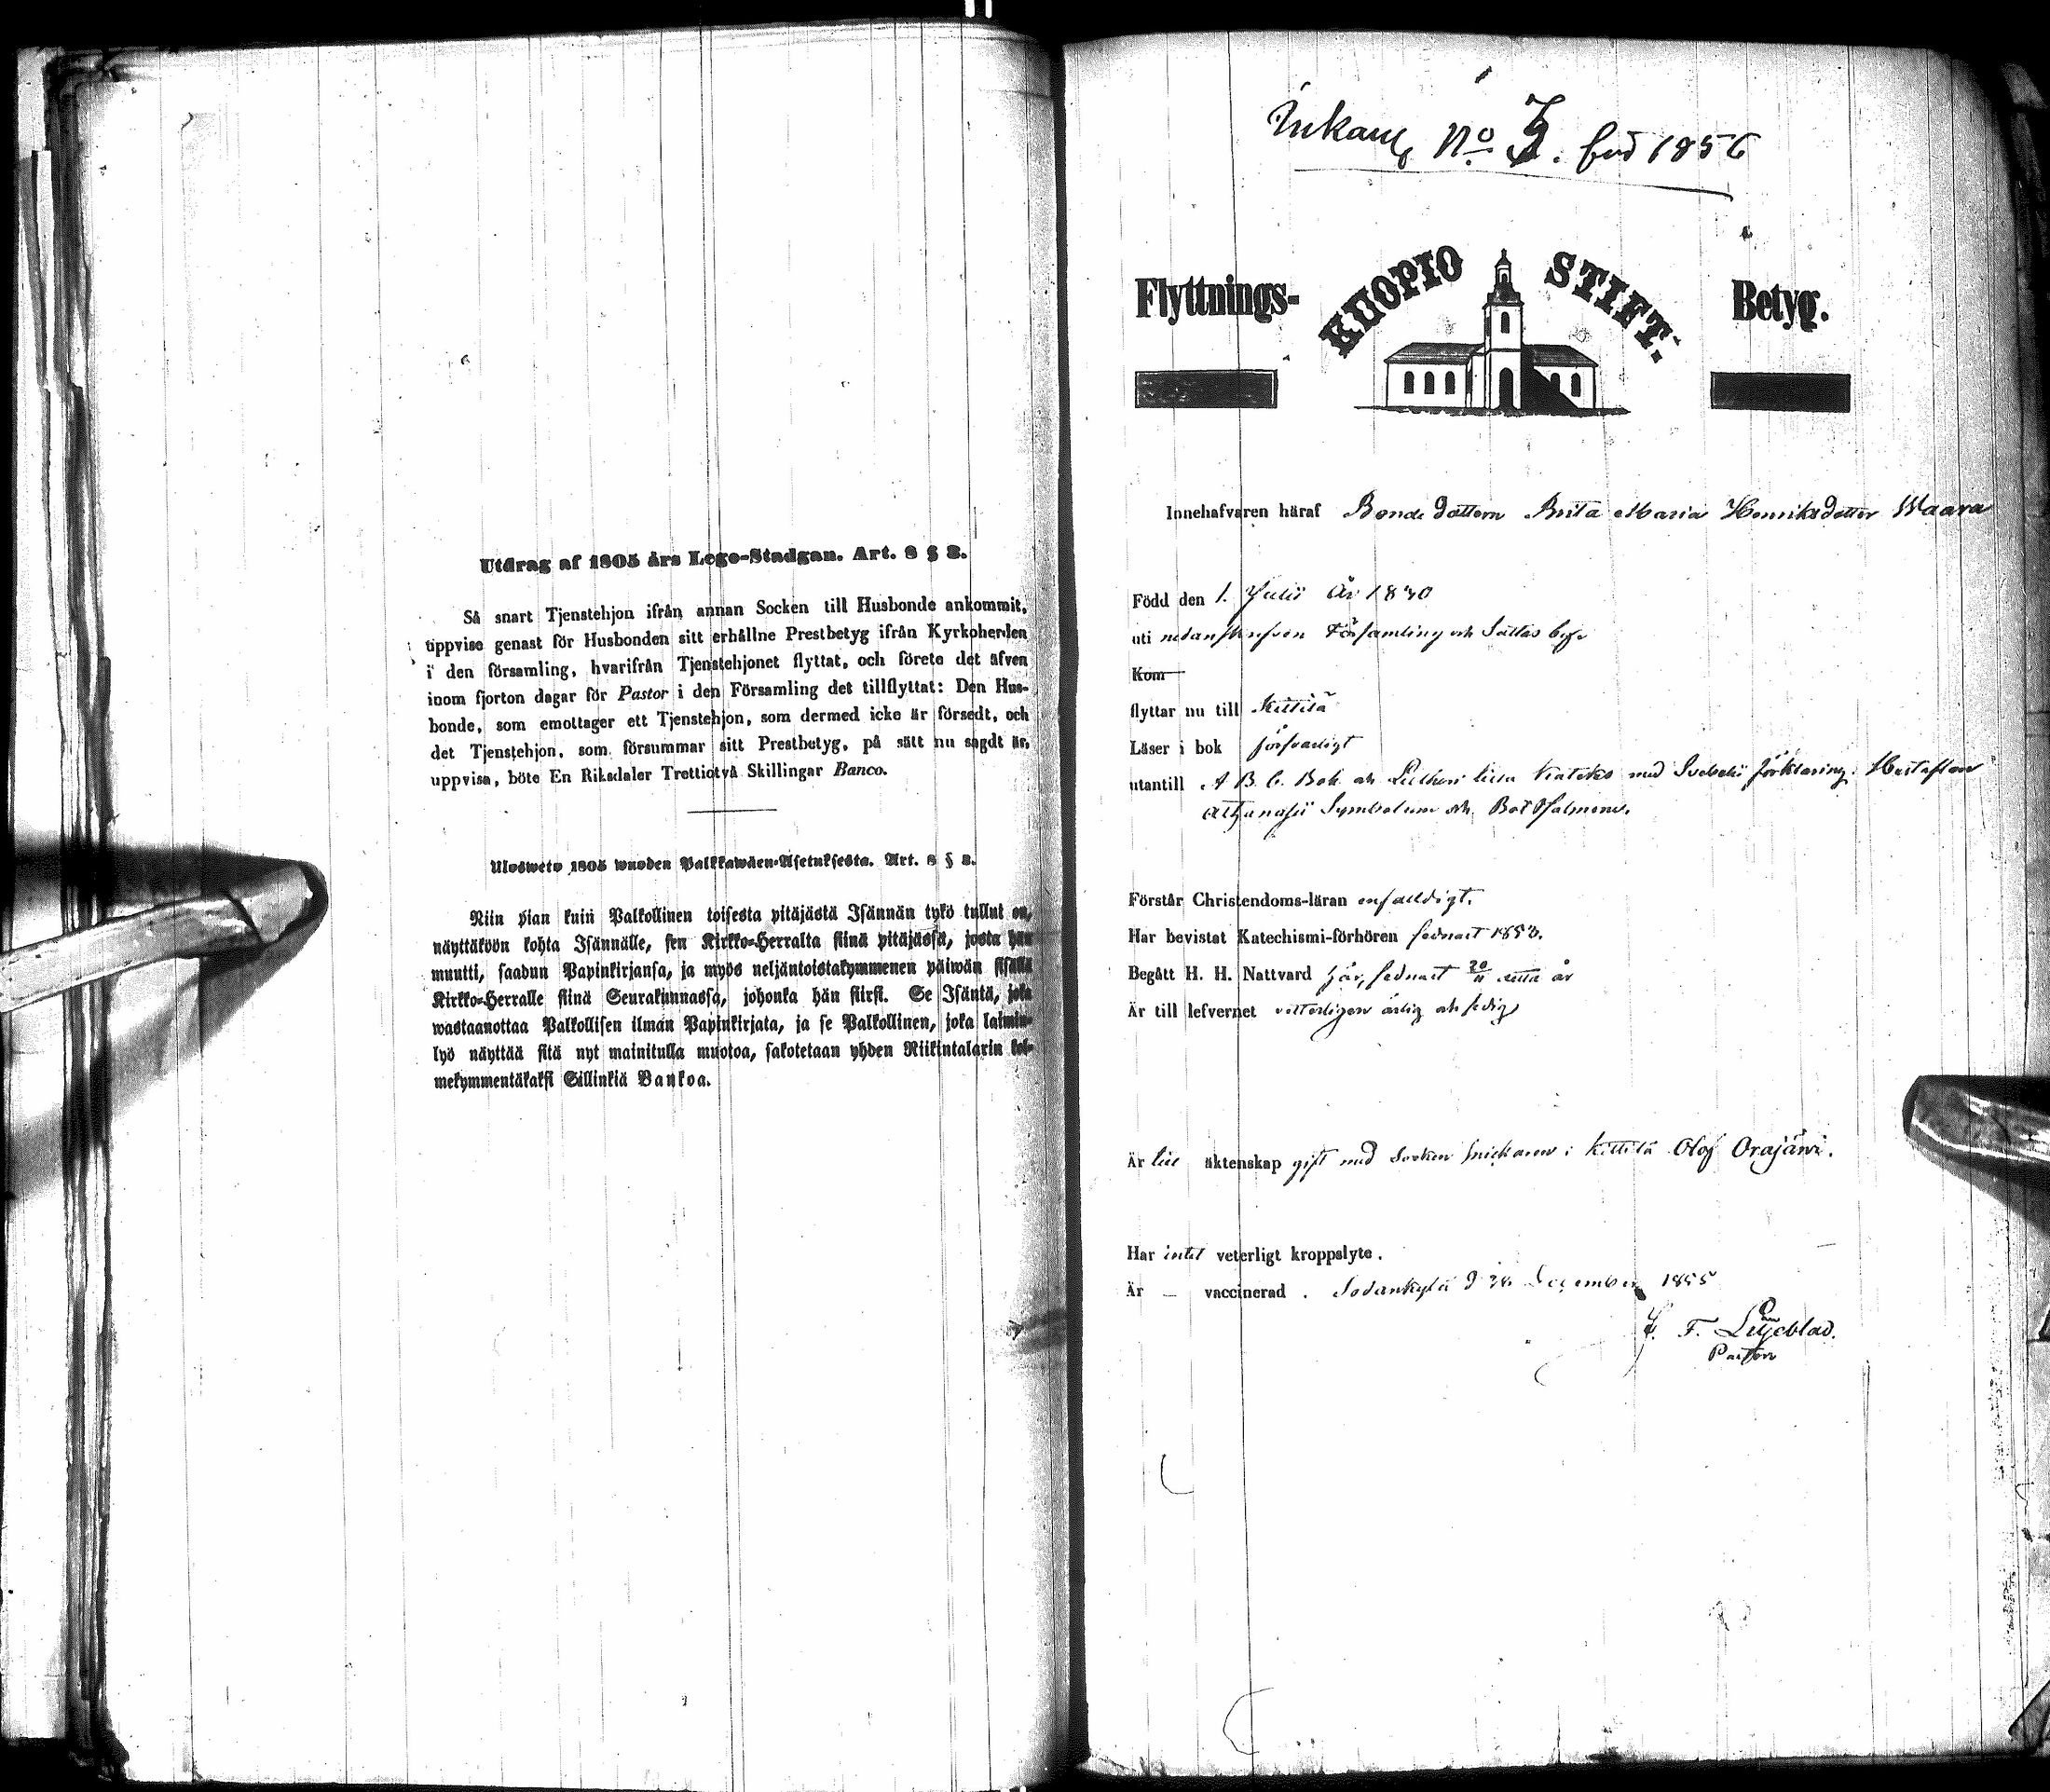 Utdrag af 1805 års Lego-Stadgan. Art. 8 § 8.
Så snart Tjenstehjon ifrån annan Socken till Husbonde ankommit,
uppvise genast för Husbonden sitt erhållne Prestbetyg ifrån Kyrkoherden
i den församling, hvarifrån Tjenstehjonet flyttat, och förete det äfven
inom fjorton dagar för Pastor i den Församling det tillflyttat: Den Hus-
bonde, som emottager ett Tjenstehjon, som dermed icke är försedt, och
det Tjenstehjon, som försummar sitt Prestbetyg, på sätt nu sagdt är,
uppvisa, böte En Riksdaler Trettiotvå Skillingar Banco.
Ulosweto 1805 wuoden Palkkawäen-Asetuksesta. Art. 8 § 8.
Niin pian kuin Palkollinen toisesta pitäjästä Isännän tykö tullut on,
näyttäköön kohta Isännälle, sen Kirkko-Herralta siinä pitäjässä, josta hän
muutti, saadun Papinkirjansa, ja myös neljäntoistakymmenen päiwän sisällä
Kirkko-Herralle siinä Seurakunnassa, johonka hän siirsi. Se Isäntä, joka
wastaanottaa Palkollisen ilman Papinkirjata, ja se Palkollinen, joka laimin-
lyö näyttää sitä nyt mainitulla muotoa, sakotetaan yhden Riikintalarin kol-
mekymmentäkaksi Sillinkiä Bankoa.
Inkom No . 1856
Flyttnings- KUOPIO STIFT. Betyg.
Innehafvaren häraf Bonde dottern Brita Maria Henriksdotter Waara
Född den 1. Julii År 1830
uti nedanskrefven Församling och Sattas by
Kom
flyttar nu till Kittilä
Läser i bok försvarligt
utantill A B C Bok och Lutheri lilla Kateches med Svebelii förklaring, Hustaflan
Athanasii Symbolum och Bot Psalmene.
Förstår Christendoms-läran enfaldigt.
Har bevistat Katechismi-förhören sednast 1853.
Begått H. H. Nattvard här, sednast 20/11 detta år
Är till lefvernet vetterligen ärlig och sedig
Är till äktenskap gift med Socken snickaren i Kittilä Olof Orajärvi.
Har intet veterligt kroppslyte.
Är — vaccinerad. Sodankylä d December 1855
F. Liljeblad.
Pastor